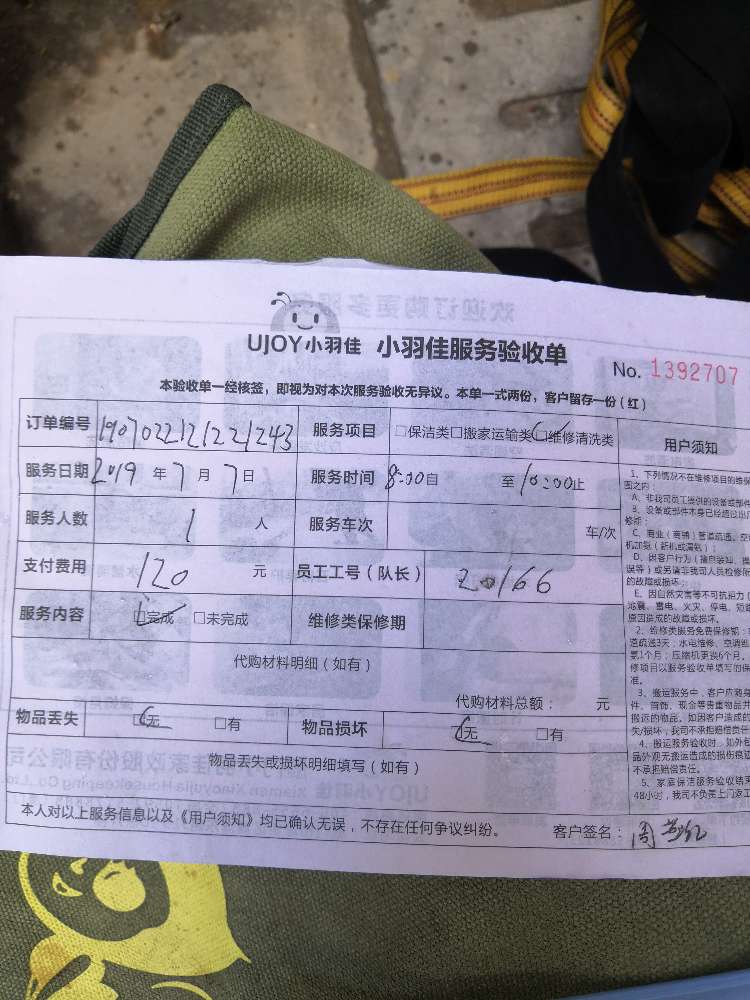 UJOY小羽佳 小羽佳服务验收单
No. 1392707
本验收单一经核签，即视为对本次服务验收无异议。本单一式两份，客户留存一份（红）
订单编号 1907022121221243 服务项目 □保洁类□搬家运输类□维修清洗类
服务日期 2019 年 7 月 7 日 服务时间 8:00自 至 10:00止
服务人数 1 人 服务车次 车/次
支付费用 120 元 员工工号（队长） 20166
服务内容 □完成 □未完成 维修类保修期
代购材料明细（如有）
代购材料总额： 元
物品丢失 □无 □有 物品损坏 □无 □有
物品丢失或损坏明细填写（如有）
本人对以上服务信息以及《用户须知》均已确认无误，不存在任何争议纠纷。 客户签名：周
用户须知
1、下列情况不在维修项目的维保
围之内：
A、非我司员工提供的设备或部件
B、设备或部件本身已经超过出厂
修期；
C、商业（商铺）管道疏通、空
机加氨（新机或漏氨）；
D、因客户行为（擅自装卸、操
误等）或另请非我司人员检修所
的故障或损坏；
E、因自然灾害等不可抗拒力（
地震、雷电、火灾、停电、短
原因造成的故障或损坏。
2、维修类服务免费保修期：
道疏通3天，水电维修、空调
氨1个月；压缩机更换6个月。
修项目以服务验收单填写的保
准。
3、搬运服务中，客户应随身
件、首饰、现金等贵重物品并
搬运的物品。如因客户造成的
失/损坏，我司不承担赔偿责任
4、搬运服务验收时，如外包
品外观无搬运造成的损伤痕迹
不承担赔偿责任。
5、家庭保洁服务验收结束
48小时，我司不负责上门返工